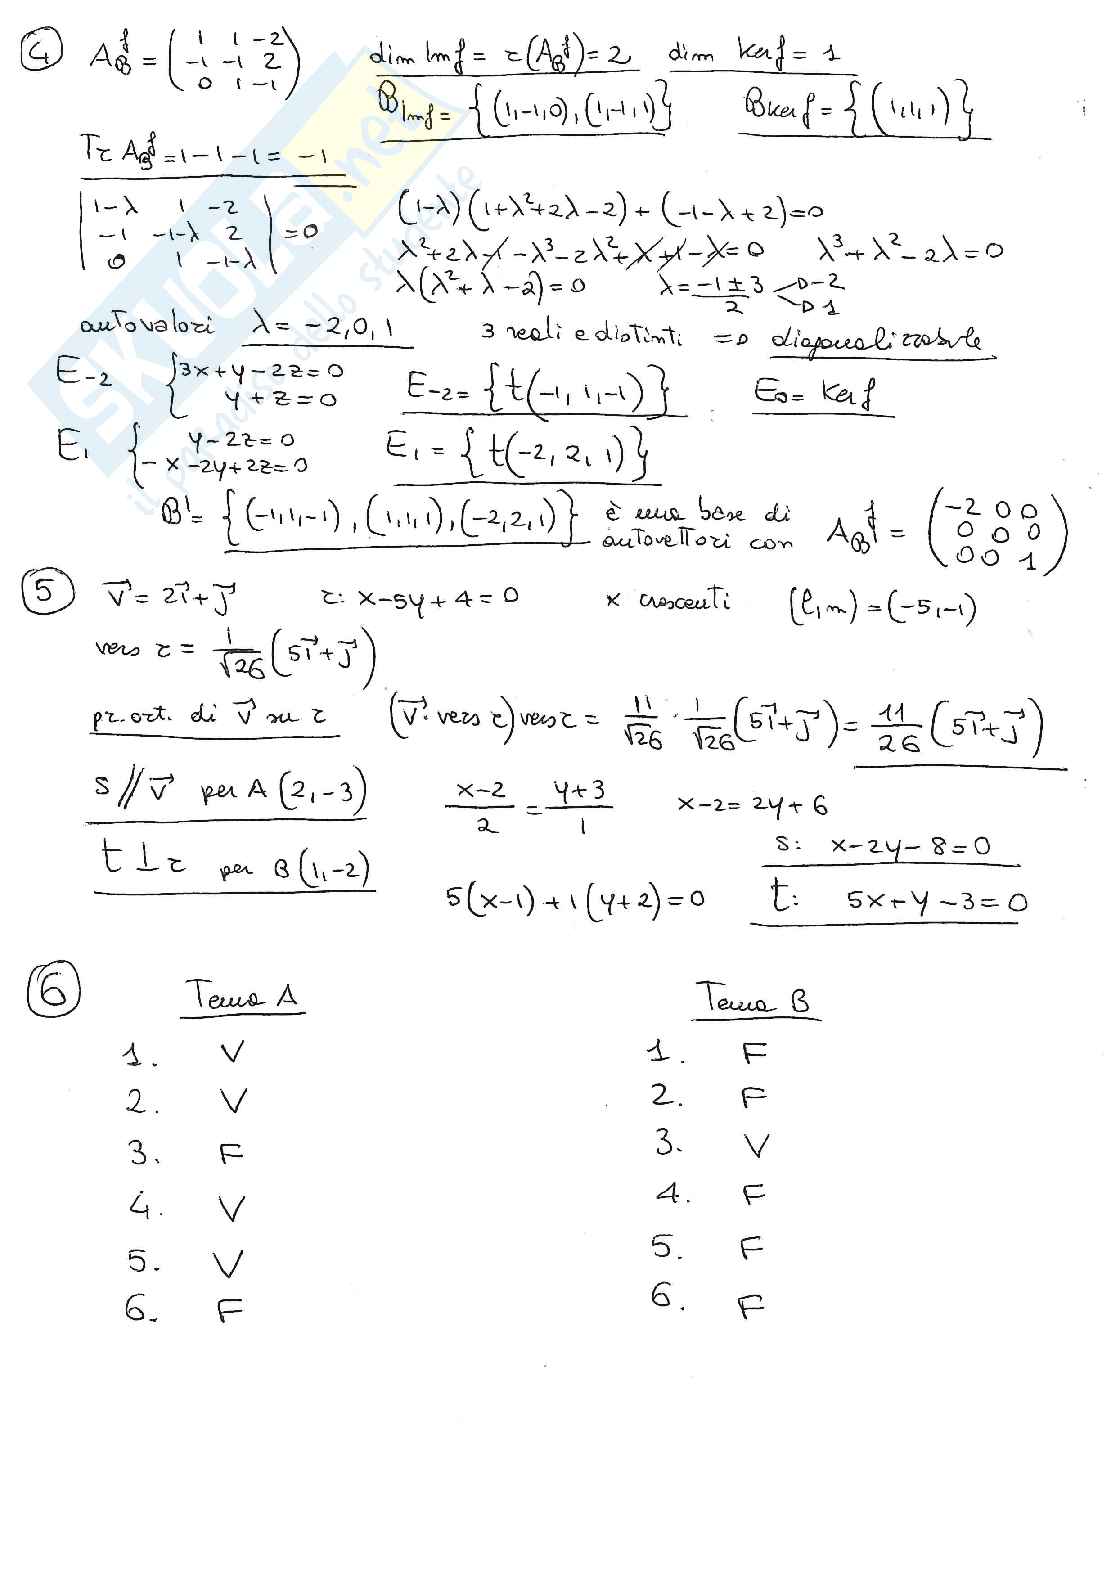 ④ A_B^f = ( 1 1 -2 ; -1 -1 2 ; 0 1 -1 ) dim Imf = r(A_B^f) = 2 dim Kerf = 1
B_Imf = {(1,-1,0),(1,-1,1)} B_Kerf = {(1,1,1)}
Tr A_B^f = 1-1-1 = -1
| 1-λ 1 -2 ; -1 -1-λ 2 ; 0 1 -1-λ | = 0 (1-λ)(1+λ²+2λ-2)+(-1-λ+2)=0
λ²+2λ-1-λ³-2λ²+λ+1-λ=0 λ³+λ²-2λ=0
λ(λ²+λ-2)=0 λ = (-1±3)/2 → -2 → 1
autovalori λ = -2,0,1 3 reali e distinti ⇒ diagonalizzabile
E₋₂ { 3x+y-2z=0 ; y+z=0 E₋₂ = {t(-1,1,-1)} E₀ = Kerf
E₁ { y-2z=0 ; -x-2y+2z=0 E₁ = {t(-2,2,1)}
B' = {(-1,1,-1),(1,1,1),(-2,2,1)} è una base di autovettori con A_B^f = ( -2 0 0 ; 0 0 0 ; 0 0 1 )
⑤ v⃗ = 2i⃗+j⃗ r: x-5y+4=0 x crescenti (l,m)=(-5,-1)
vers r = 1/√26 (5i⃗+j⃗)
pr. ort. di v⃗ su r (v⃗·vers r) vers r = 11/√26 · 1/√26 (5i⃗+j⃗) = 11/26 (5i⃗+j⃗)
s // v⃗ per A(2,-3) (x-2)/2 = (y+3)/1 x-2=2y+6
s: x-2y-8=0
t ⊥ r per B(1,-2) 5(x-1)+1(y+2)=0 t: 5x+y-3=0
⑥ Tema A Tema B
1. V 1. F
2. V 2. F
3. F 3. V
4. V 4. F
5. V 5. F
6. F 6. F
SKUOLA.net
il paradiso dello studente